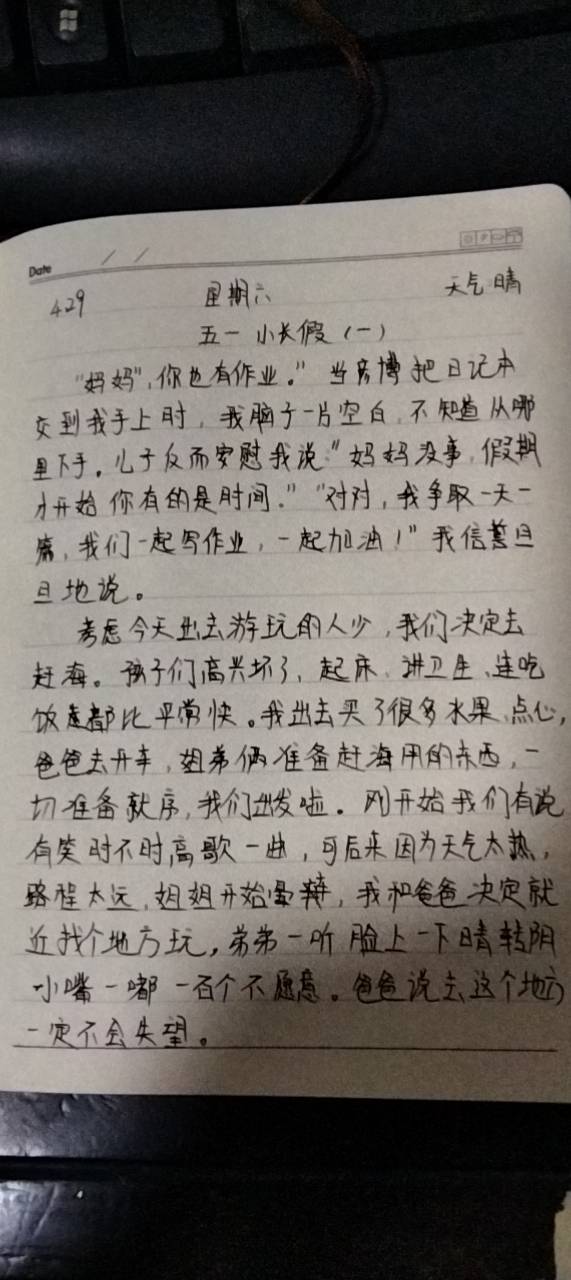 Date / /
4.29 星期六 天气晴
五一小长假(一)
"妈妈",你也有作业。"当彦博把日记本
交到我手上时,我脑子一片空白,不知道从哪
里下手。儿子反而安慰我说:"妈妈没事,假期
才开始你有的是时间。""对对,我争取一天一
篇,我们一起写作业,一起加油!"我信誓旦
旦地说。
考虑今天出去游玩的人少,我们决定去
赶海。孩子们高兴坏了,起床、讲卫生、连吃
饭速都比平常快。我出去买了很多水果、点心,
爸爸去开车,姐弟俩准备赶海用的东西,一
切准备就序,我们出发啦。刚开始我们有说
有笑时不时高歌一曲,可后来因为天气太热,
路程太远,姐姐开始晕,我和爸爸决定就
近找个地方玩,弟弟一听脸上一下晴转阴
小嘴一嘟一百个不愿意。爸爸说去这个地方
一定不会失望。